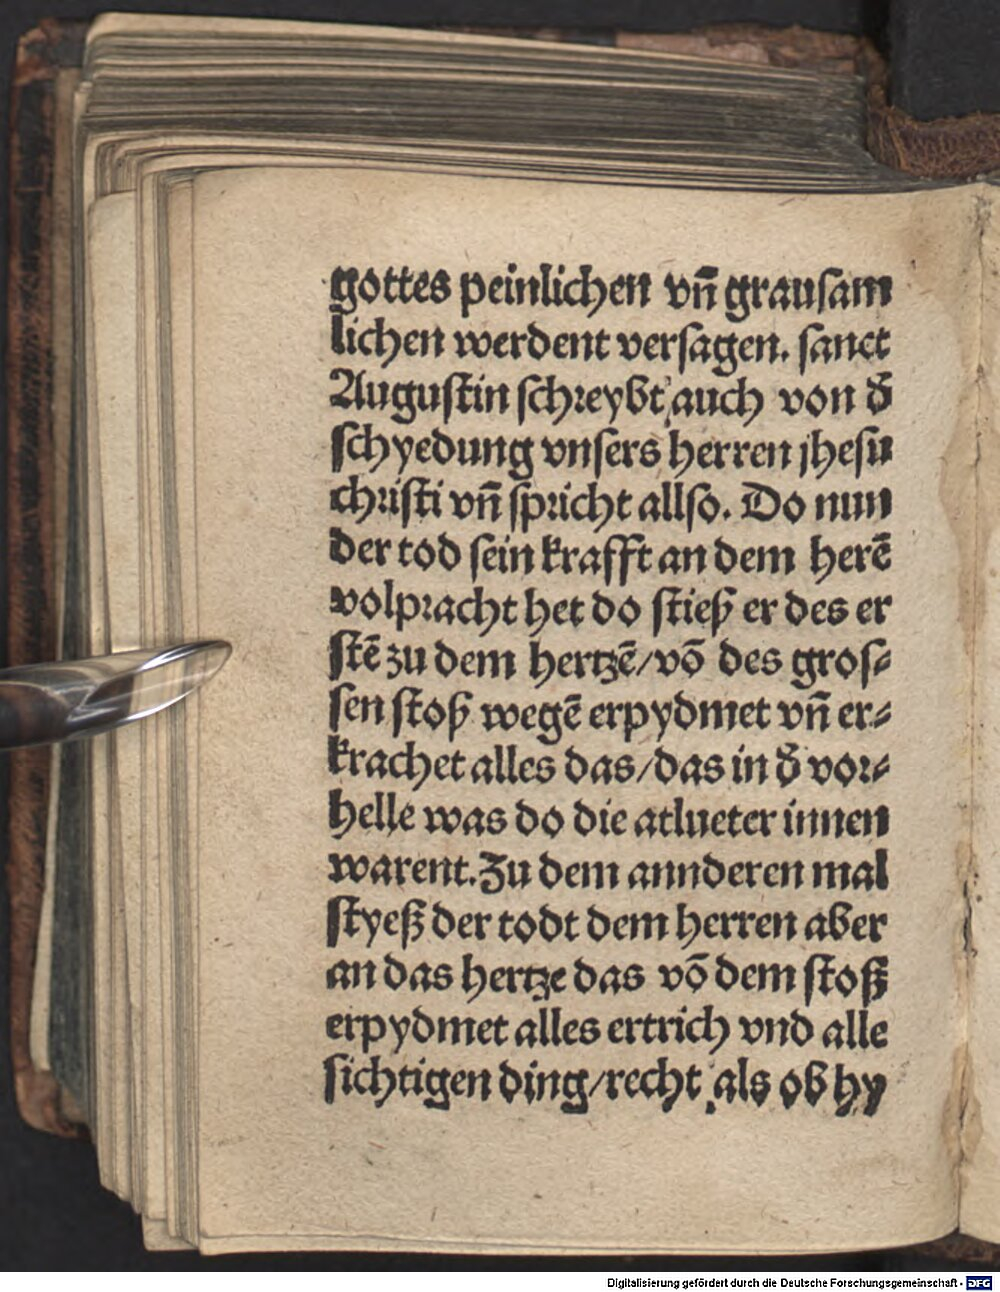 gottes peinlichen vn̄ grausam
lichen werdent versagen. sanct
Augustin schreybt auch von d̄
schyedung vnsers herren jhesu
christi vn̄ spricht allso. Do nun
der tod sein krafft an dem herē
volpracht het do stieß er des er
stē zu dem hertzē/vō des gros⸗
sen stoß wegē erpydmet vn̄ er⸗
krachet alles das/das in d̄ vor⸗
helle was do die atlueter innen
warent. Zu dem annderen mal
styeß der todt dem herren aber
an das hertze das vō dem stoß
erpydmet alles ertrich vnd alle
sichtigen ding/recht als ob hy
Digitalisierung gefördert durch die Deutsche Forschungsgemeinschaft - DFG